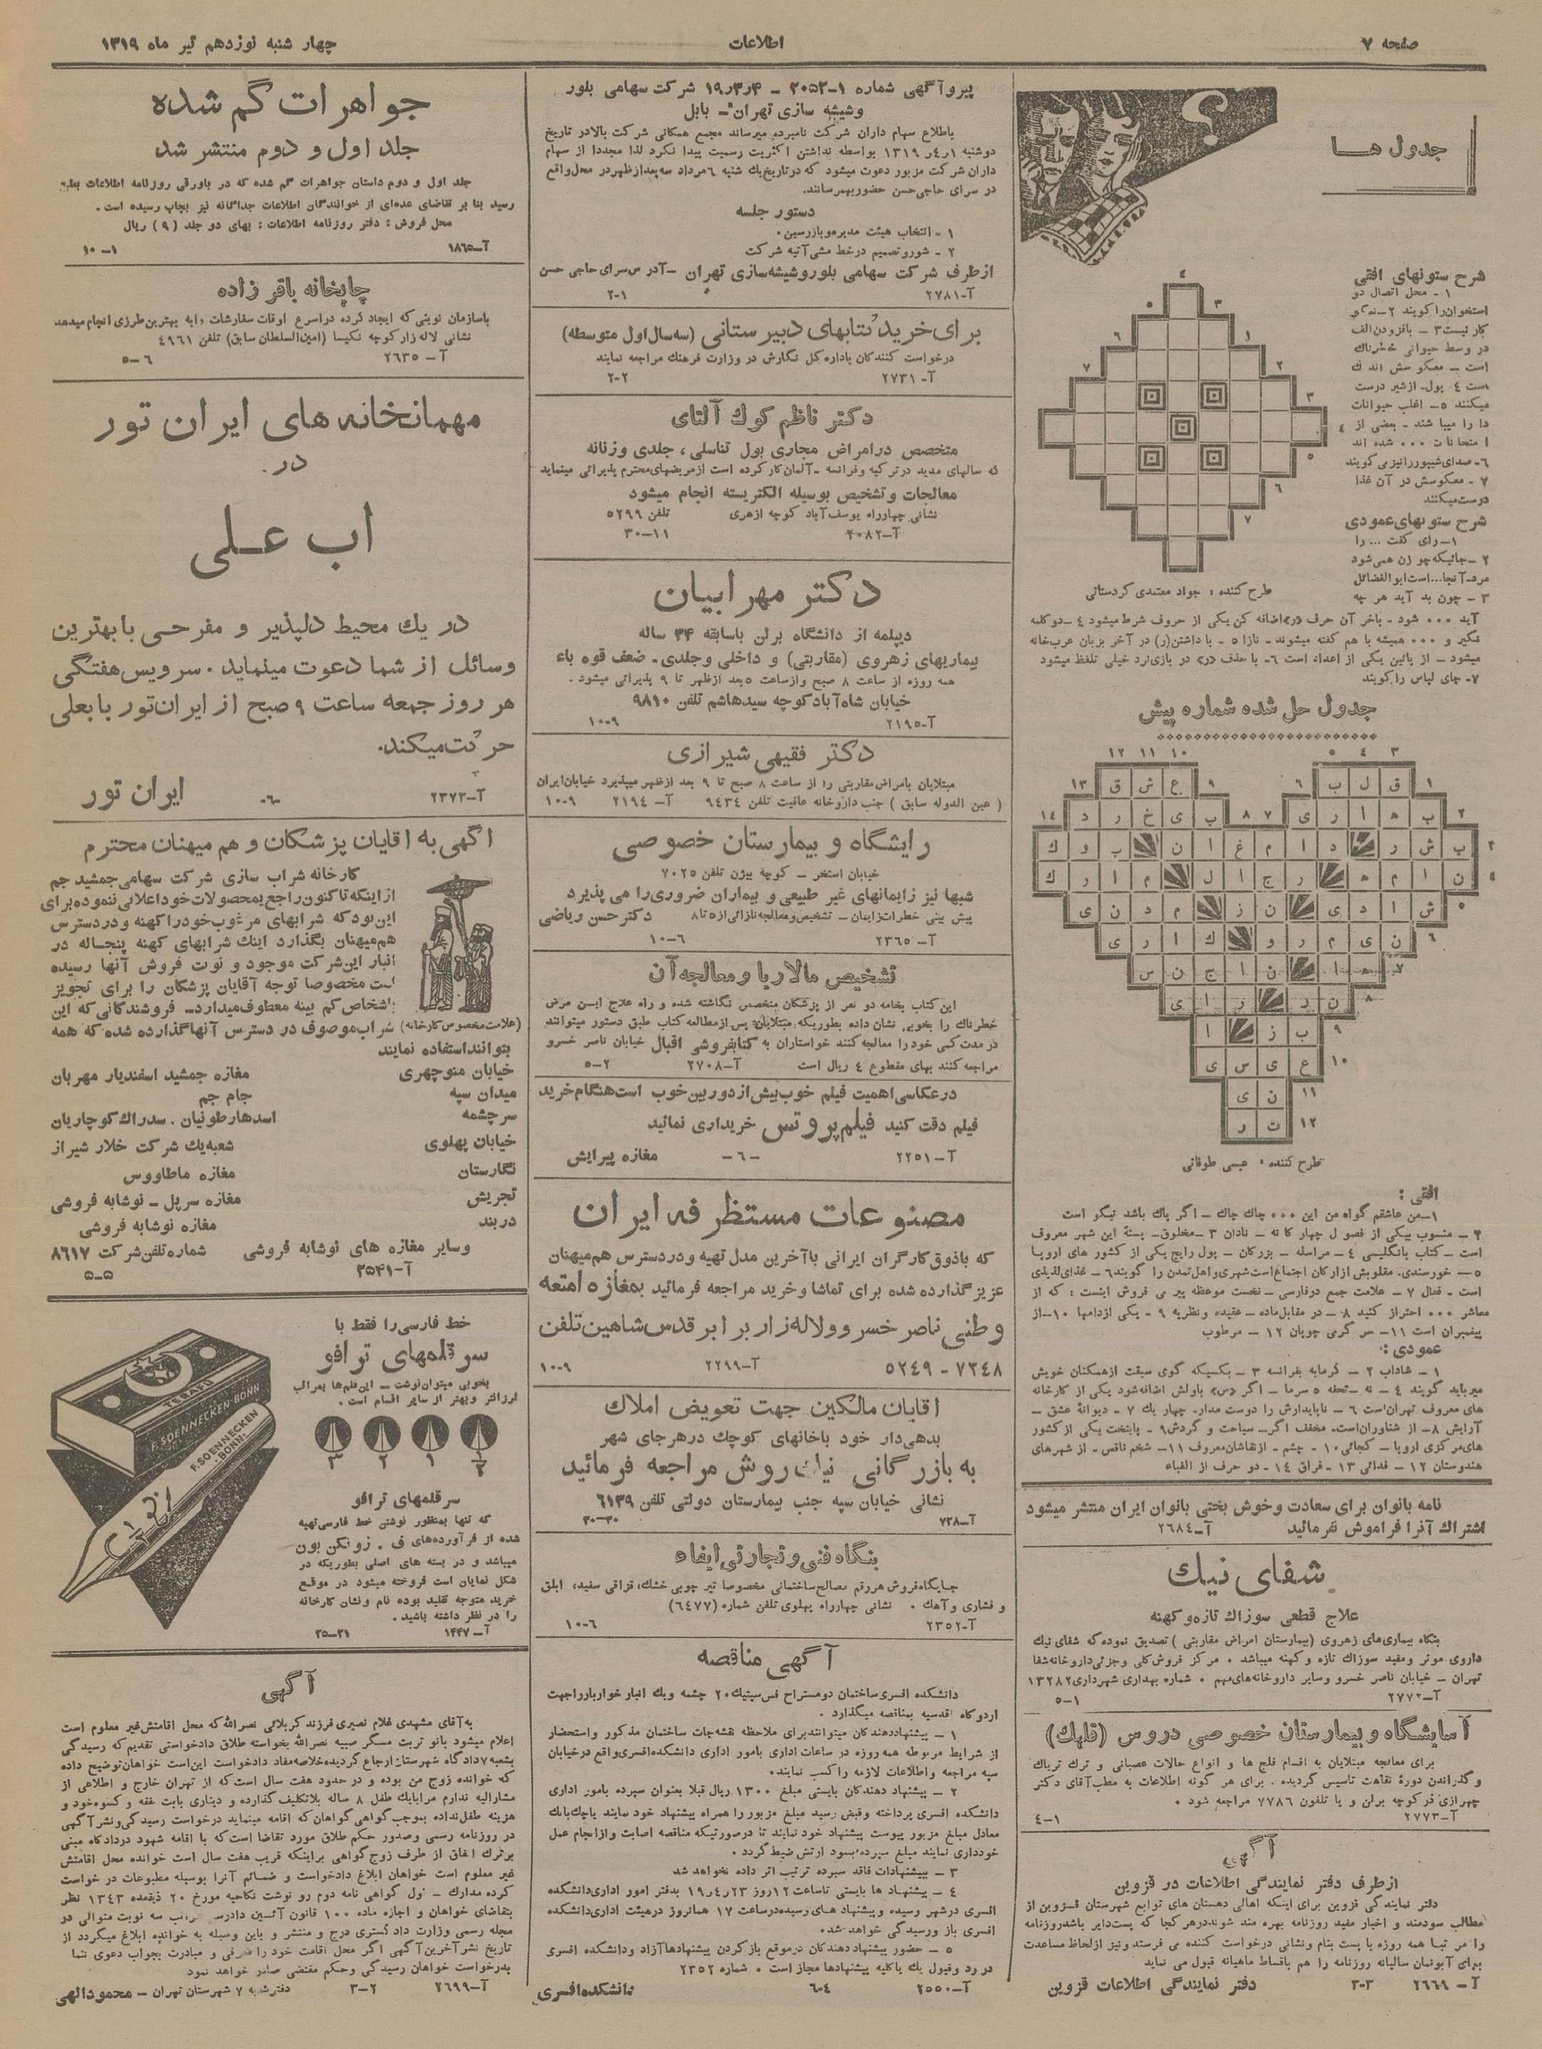 صفحه ۷
اطلاعات
چهار شنبه نوزدهم تیر ماه ۱۳۱۹
جدول هـا
شرح ستونهای افقی
۱ - محل اتصال دو
استخوان را گویند ۲ -
کار نیست ۳ - بافزودن الف
در وسط حیوانی خطرناک
است - معکوسش اندک
است ٤ - پول - ازشیر درست
میکنند ٥ - اغلب حیوانات
دارا میباشند - بعضی از
امتحانات ... شده اند
٦ - صدای شیپور را نیز میگویند
۷ - معکوسش در آن غذا
درست میکنند
شرح ستونهای عمودی
۱ - رای گفت ... را
۲ - جائیکه چو زن همی شود
مرد - آنجا ... است ابوالفضائل
۳ - چون بد آید هر چه
طرح کننده : جواد معتمدی کردستانی
آید ... شود - بآخر آن حرف «ر» اضافه کن یکی از حروف شرط میشود ٤ - دو کلمه
و ... همیشه با هم گفته میشوند - نازا ٥ - با داشتن (ر) در آخر بزبان عرب خانه
میشود - از پائین یکی از اعداد است ٦ - با حذف «ر» در بازی نرد خیلی تلفظ میشود
۷ - جای لباس را گویند
جدول حل شده شماره پیش
طرح کننده : عیسی طوقانی
افقی :
۱ - من عاشقم گواه من این ... چاک چاک - اگر پاک باشد نیکو است
۲ - منسوب بیکی از فصول چهار گانه - نادان ۳ - مخلوق - پستهٔ این شهر معروف
است - کتاب بانگلیسی ٤ - مراسله - بزرگان - پول رایج یکی از کشور های اروپا
٥ - خورسندی - مقلوبش از ارکان اجتماع است شهری و اهل تمدن را گویند ٦ - غذای لذیذی
است - فعال ۷ - علامت جمع در فارسی - نخست موعظه پیر می فروش اینست : که از
معاشر ... احتراز کنید ۸ - در مقابل ماده - عقیده و نظریه ۹ - یکی از دامها ۱۰ - از
پیغمبران است ۱۱ - سر گری چوپان ۱۲ - مرطوب
عمودی :
۱ - شاداب ۲ - گرمابه بفرانسه ۳ - بکسیکه گوی سبقت از همگنان خویش
میرباید گویند ٤ - نه - تحفه ٥ سرما - اگر «س» باولش اضافه شود یکی از کارخانه
های معروف تهران است ٦ - ناپایدارش را دوست مدار - چهار یک ۷ - دیوانهٔ عشق -
آرایش ۸ - از شناوران است - مخفف اگر - سیاحت و گردش ۹ - پایتخت یکی از کشور
های مرکزی اروپا - کجائی ۱۰ - چشم - از نقاشان معروف ۱۱ - شخم ناقص - از شهرهای
هندوستان ۱۲ - فدائی ۱۳ - فراق ۱٤ - دو حرف از الفباء
نامه بانوان برای سعادت و خوش بختی بانوان ایران منتشر میشود
اشتراک آنرا فراموش نفرمائید آ-۲٦۸٤
شفای نیک
علاج قطعی سوزاک تازه و کهنه
بنگاه بیماری های زهروی (بیمارستان امراض مقاربتی) تصدیق نموده که شفای نیک
داروی موثر و مفید سوزاک تازه و کهنه میباشد . مرکز فروش کلی و جزئی داروخانه شفا
تهران - خیابان ناصر خسرو و سایر داروخانه های مهم . شماره بهداری شهرداری ۱۳۲۸۲
آ-۲۷۷۲ ۱-٥
آسایشگاه و بیمارستان خصوصی دروس (قلهک)
برای معالجه مبتلایان به اقسام فلج ها و انواع حالات عصبانی و ترک تریاک
و گذراندن دورهٔ نقاهت تاسیس گردیده . برای هر گونه اطلاعات به مطب آقای دکتر
چهرازی در کوچه بران و یا تلفون ۷۷۸٦ مراجعه شود .
آ-۲۷۷۳ ۱-٤
آگهی
ازطرف دفتر نمایندگی اطلاعات در قزوین
دفتر نمایندگی قزوین برای اینکه اهالی دهستان های توابع شهرستان قزوین از
مطالب سودمند و اخبار مفید روزنامه بهره مند شوند در هر کجا که پست دایر باشد روزنامه
را مرتبا همه روزه با پست بنام و نشانی درخواست کننده می فرستد و نیز از لحاظ مساعدت
برای آبونمان سالیانه روزنامه را هم باقساط ماهیانه قبول می نماید
آ - ۲٦٦۹ ۳-۳ دفتر نمایندگی اطلاعات قزوین
پیرو آگهی شماره ۱-۲۰۵۲ - ۱۹ر۳ر۴ شرکت سهامی بلور
و شیشه سازی تهران - بابل
باطلاع سهام داران شرکت نامبرده میرساند مجمع همگانی شرکت بالا در تاریخ
دوشنبه ۱ر٤ر۱۳۱۹ بواسطه نداشتن اکثریت رسمیت پیدا نکرد لذا مجددا از سهام
داران شرکت مزبور دعوت میشود که در تاریخ یک شنبه ٦ مرداد سه بعد از ظهر در محل واقع
در سرای حاجی حسن حضور بهمرسانند.
دستور جلسه
۱ - انتخاب هیئت مدیره و بازرسین.
۲ - شور و تصمیم در خط مشی آتیه شرکت
ازطرف شرکت سهامی بلور و شیشه سازی تهران - آدرس سرای حاجی حسن
آ-۲۷۸۱ ۱-۲
برای خرید کتابهای دبیرستانی (سه سال اول متوسطه)
درخواست کنندگان باداره کل نگارش در وزارت فرهنگ مراجعه نمایند
آ-۲۷۳۱ ۲-۲
دکتر ناظم کوک آلتای
متخصص در امراض مجاری بول تناسلی، جلدی و زنانه
که سالهای مدید در ترکیه و فرانسه - آلمان کار کرده است از مریضهای محترم پذیرائی مینماید
معالجات و تشخیص بوسیله الکتریسته انجام میشود
نشانی چهارراه یوسف آباد کوچه ازهری تلفن ۵۲۹۹
آ-۲۰۸۲ ۱۱-۳۰
دکتر مهرابیان
دیپلمه از دانشگاه برلن باسابقه ۳۴ ساله
بیماریهای زهروی (مقاربتی) و داخلی و جلدی - ضعف قوه باء
همه روزه از ساعت ۸ صبح و از ساعت ٥ بعد از ظهر تا ۹ پذیرائی میشود .
خیابان شاه آباد کوچه سیدهاشم تلفن ۹۸۱۰
آ-۲۱۹۵ ۹-۱۰
دکتر فقیهی شیرازی
مبتلایان بامراض مقاربتی را از ساعت ۸ صبح تا ۹ بعد از ظهر میپذیرد خیابان ایران
(عین الدوله سابق) جنب داروخانه عافیت تلفن ۹٤۳٤ آ - ۲۱۹٤ ۹-۱۰
زایشگاه و بیمارستان خصوصی
خیابان استخر - کوچه بیژن تلفن ۷۰۲۵
شبها نیز زایمانهای غیر طبیعی و بیماران ضروری را می پذیرد
پیش بینی خطرات زایمان - تشخیص و معالجه نازائی از ٥ تا ۸ دکتر حسن ریاضی
آ-۲۳٦٥ ٦-۱۰
تشخیص مالاریا و معالجه آن
این کتاب بخامه دو نفر از پزشکان متخصص نگاشته شده و راه علاج این مرض
خطرناک را بخوبی نشان داده بطوریکه مبتلایان پس از مطالعه کتاب طبق دستور میتوانند
در مدت کمی خود را معالجه کنند خواستاران به کتابفروشی اقبال خیابان ناصر خسرو
مراجعه کنند بهای مقطوع ٤ ریال است آ-۲۷۰۸ ۲-٥
در عکاسی اهمیت فیلم خوب بیش از دوربین خوب است هنگام خرید
فیلم دقت کنید فیلم پروتس خریداری نمائید
آ-۲۲۵۱ -٦- مغازه پیرایش
مصنوعات مستظرفه ایران
که باذوق کارگران ایرانی با آخرین مدل تهیه و در دسترس هم میهنان
عزیز گذارده شده برای تماشا و خرید مراجعه فرمائید بمغازه امتعه
وطنی ناصر خسرو و لاله زار برابر قدس شاهین تلفن
۷۲٤۸ - ٥۲٤۹ آ-۲۲۹۹ ۹-۱۰
آقایان مالکین جهت تعویض املاک
بدهی دار خود باخانهای کوچک در هر جای شهر
به بازرگانی نیک روش مراجعه فرمائید
نشانی خیابان سپه جنب بیمارستان دولتی تلفن ٦۱۳۹
آ-۷۲۸ ۳۰-۳۰
بنگاه فنی و تجارتی ایفاء
جایگاه فروش هر رقم مصالح ساختمانی مخصوصا تیر چوبی خشک، قزاقی سفید، ابلق
و فشاری و آهک . نشانی چهارراه پهلوی تلفن شماره (٦٤۷۷)
آ-۲۳۵۲ ٦-۱۰
آگهی مناقصه
دانشکده افسری ساختمان دو مستراح فس سپتیک ۲۰ چشمه و یک انبار خوار بار را جهت
اردوگاه اقدسیه بمناقصه میگذارد .
۱ - پیشنهاد دهندگان میتوانند برای ملاحظه نقشه جات ساختمان مذکور و استحضار
از شرایط مربوطه همه روزه در ساعات اداری بامور اداری دانشکده افسری واقع در خیابان
سپه مراجعه و اطلاعات لازمه را کسب نمایند.
۲ - پیشنهاد دهندگان بایستی مبلغ ۱۳۰۰ ریال قبلا بعنوان سپرده بامور اداری
دانشکده افسری پرداخته و قبض رسید مبلغ مزبور را همراه پیشنهاد خود نمایند یا چک بانک
معادل مبلغ مزبور پیوست پیشنهاد خود نمایند تا در صورتیکه مناقصه اصابت و از انجام عمل
خودداری نمایند مبلغ سپرده بسود ارتش ضبط گردد .
۳ - بپیشنهادات فاقد سپرده ترتیب اثر داده نخواهد شد
٤ - پیشنهاد ها بایستی تا ساعت ۱۲ روز ۲۳ر٤ر۱۹ بدفتر امور اداری دانشکده
افسری در شهر رسیده و پیشنهاد های رسیده در ساعت ۱۷ همانروز در هیئت اداری دانشکده
افسری باز و رسیدگی خواهد شد.
٥ - حضور پیشنهاد دهندگان در موقع باز کردن پیشنهادها آزاد و دانشکده افسری
در رد و قبول یک یا کلیه پیشنهادها مجاز است . شماره ۲۳۵۲
آ-۲۵۵۰ ٤-٦ دانشکده افسری
جواهرات گم شده
جلد اول و دوم منتشر شد
جلد اول و دوم داستان جواهرات گم شده که در پاورقی روزنامه اطلاعات بطبع
رسید بنا بر تقاضای عده ای از خوانندگان اطلاعات جداگانه نیز بچاپ رسیده است .
محل فروش : دفتر روزنامه اطلاعات : بهای دو جلد (۹) ریال
آ-۱۸٦٥ ۱-۱۰
چاپخانه باقر زاده
باسازمان نوینی که ایجاد کرده در اسرع اوقات سفارشات را به بهترین طرزی انجام میدهد
نشانی لاله زار کوچه نکیسا (امین السلطان سابق) تلفن ٤۹٦۱
آ - ۲٦۳٥ ٦-٥
مهمانخانه های ایران تور
در
آب عـلی
در یک محیط دلپذیر و مفرحی با بهترین
وسائل از شما دعوت مینماید . سرویس هفتگی
هر روز جمعه ساعت ۹ صبح از ایران تور بابعلی
حرکت میکند.
آ-۲۳۷۳ -٦- ایران تور
آگهی به آقایان پزشکان و هم میهنان محترم
کارخانه شراب سازی شرکت سهامی جمشید جم
از اینکه تا کنون راجع بمحصولات خود اعلانی ننموده برای
این بود که شرابهای مرغوب خود را کهنه و در دسترس
هم میهنان بگذارد اینک شرابهای کهنه پنجساله در
انبار این شرکت موجود و نوبت فروش آنها رسیده
است مخصوصا توجه آقایان پزشکان را برای تجویز
باشخاص کم بینه معطوف میدارد - فروشندگانی که این
شراب موصوف در دسترس آنها گذارده شده که همه
(علامت مخصوص کارخانه)
بتوانند استفاده نمایند
خیابان منوچهری مغازه جمشید اسفندیار مهربان
میدان سپه جام جم
سرچشمه اسدهارطونیان . سدراک کوچاریان
خیابان پهلوی شعبه یک شرکت خلار شیراز
نگارستان مغازه ماطاووس
تجریش مغازه سرپل - نوشابه فروشی
دربند مغازه نوشابه فروشی
و سایر مغازه های نوشابه فروشی شماره تلفن شرکت ۸٦۱۷
آ-۲۵۴۱ ۵-۵
خط فارسی را فقط با
سرقلمهای ترافو
بخوبی میتوان نوشت - این قلمها بمراتب
ارزانتر و بهتر از سایر اقسام است .
۳ ۲ ۱ ½
TERAFU
F. SOENNECKEN·BONN
F. SOENNECKEN
·BONN·
سرقلمهای ترافو
که تنها بمنظور نوشتن خط فارسی تهیه
شده از فرآورده های ف . زونکن بون
میباشد و در بسته های اصلی بطوریکه در
شکل نمایان است فروخته میشود در موقع
خرید متوجه تقلید بوده نام و نشان کارخانه
را در نظر داشته باشید .
آ-۱٤٤۷ ۲۱-۲۵
آگهی
به آقای مشهدی غلام نصیری فرزند کربلائی نصرالله که محل اقامتش غیر معلوم است
اعلام میشود بانو تربت مسگر صبیه نصرالله بخواسته طلاق دادخواستی تقدیم که رسیدگی
بشعبه ۷ دادگاه شهرستان ارجاع گردیده خلاصه مفاد دادخواست این است خواهان توضیح داده
که خوانده زوج من بوده و در حدود هفت سال است که از تهران خارج و اطلاعی از
مشارالیه ندارم مرا با یک طفل ۸ ساله بلاتکلیف گذارده و دیناری بابت نفقه و کسوه خود و
هزینه طفل نداده بموجب گواهی گواهان که اقامه مینماید درخواست رسیدگی و نشر آگهی
در روزنامه رسمی و صدور حکم طلاق مورد تقاضا است که با اقامه شهود در دادگاه مبنی
برترک انفاق از طرف زوج گواهی براینکه قریب هفت سال است خوانده محل اقامتش
غیر معلوم است خواهان ابلاغ دادخواست و ضمائم آنرا بوسیله مطبوعات درخواست
کرده مدارک - اول گواهی نامه دوم رونوشت نکاحیه مورخ ۲۰ ذیقعده ۱۳٤۳ نظر
بتقاضای خواهان و اجازه ماده ۱۰۰ قانون آئین دادرسی مراتب سه نوبت متوالی در
مجله رسمی وزارت دادگستری درج و منتشر و باین وسیله به خوانده ابلاغ میگردد از
تاریخ نشر آخرین آگهی اگر محل اقامت خود را معرفی و مبادرت بجواب دعوی ننما
ید درخواست خواهان رسیدگی و حکم مقتضی صادر خواهد نمود
آ-۲٦۹۹ ۲-۳ دفتر شعبه ۷ شهرستان تهران - محمود الهی